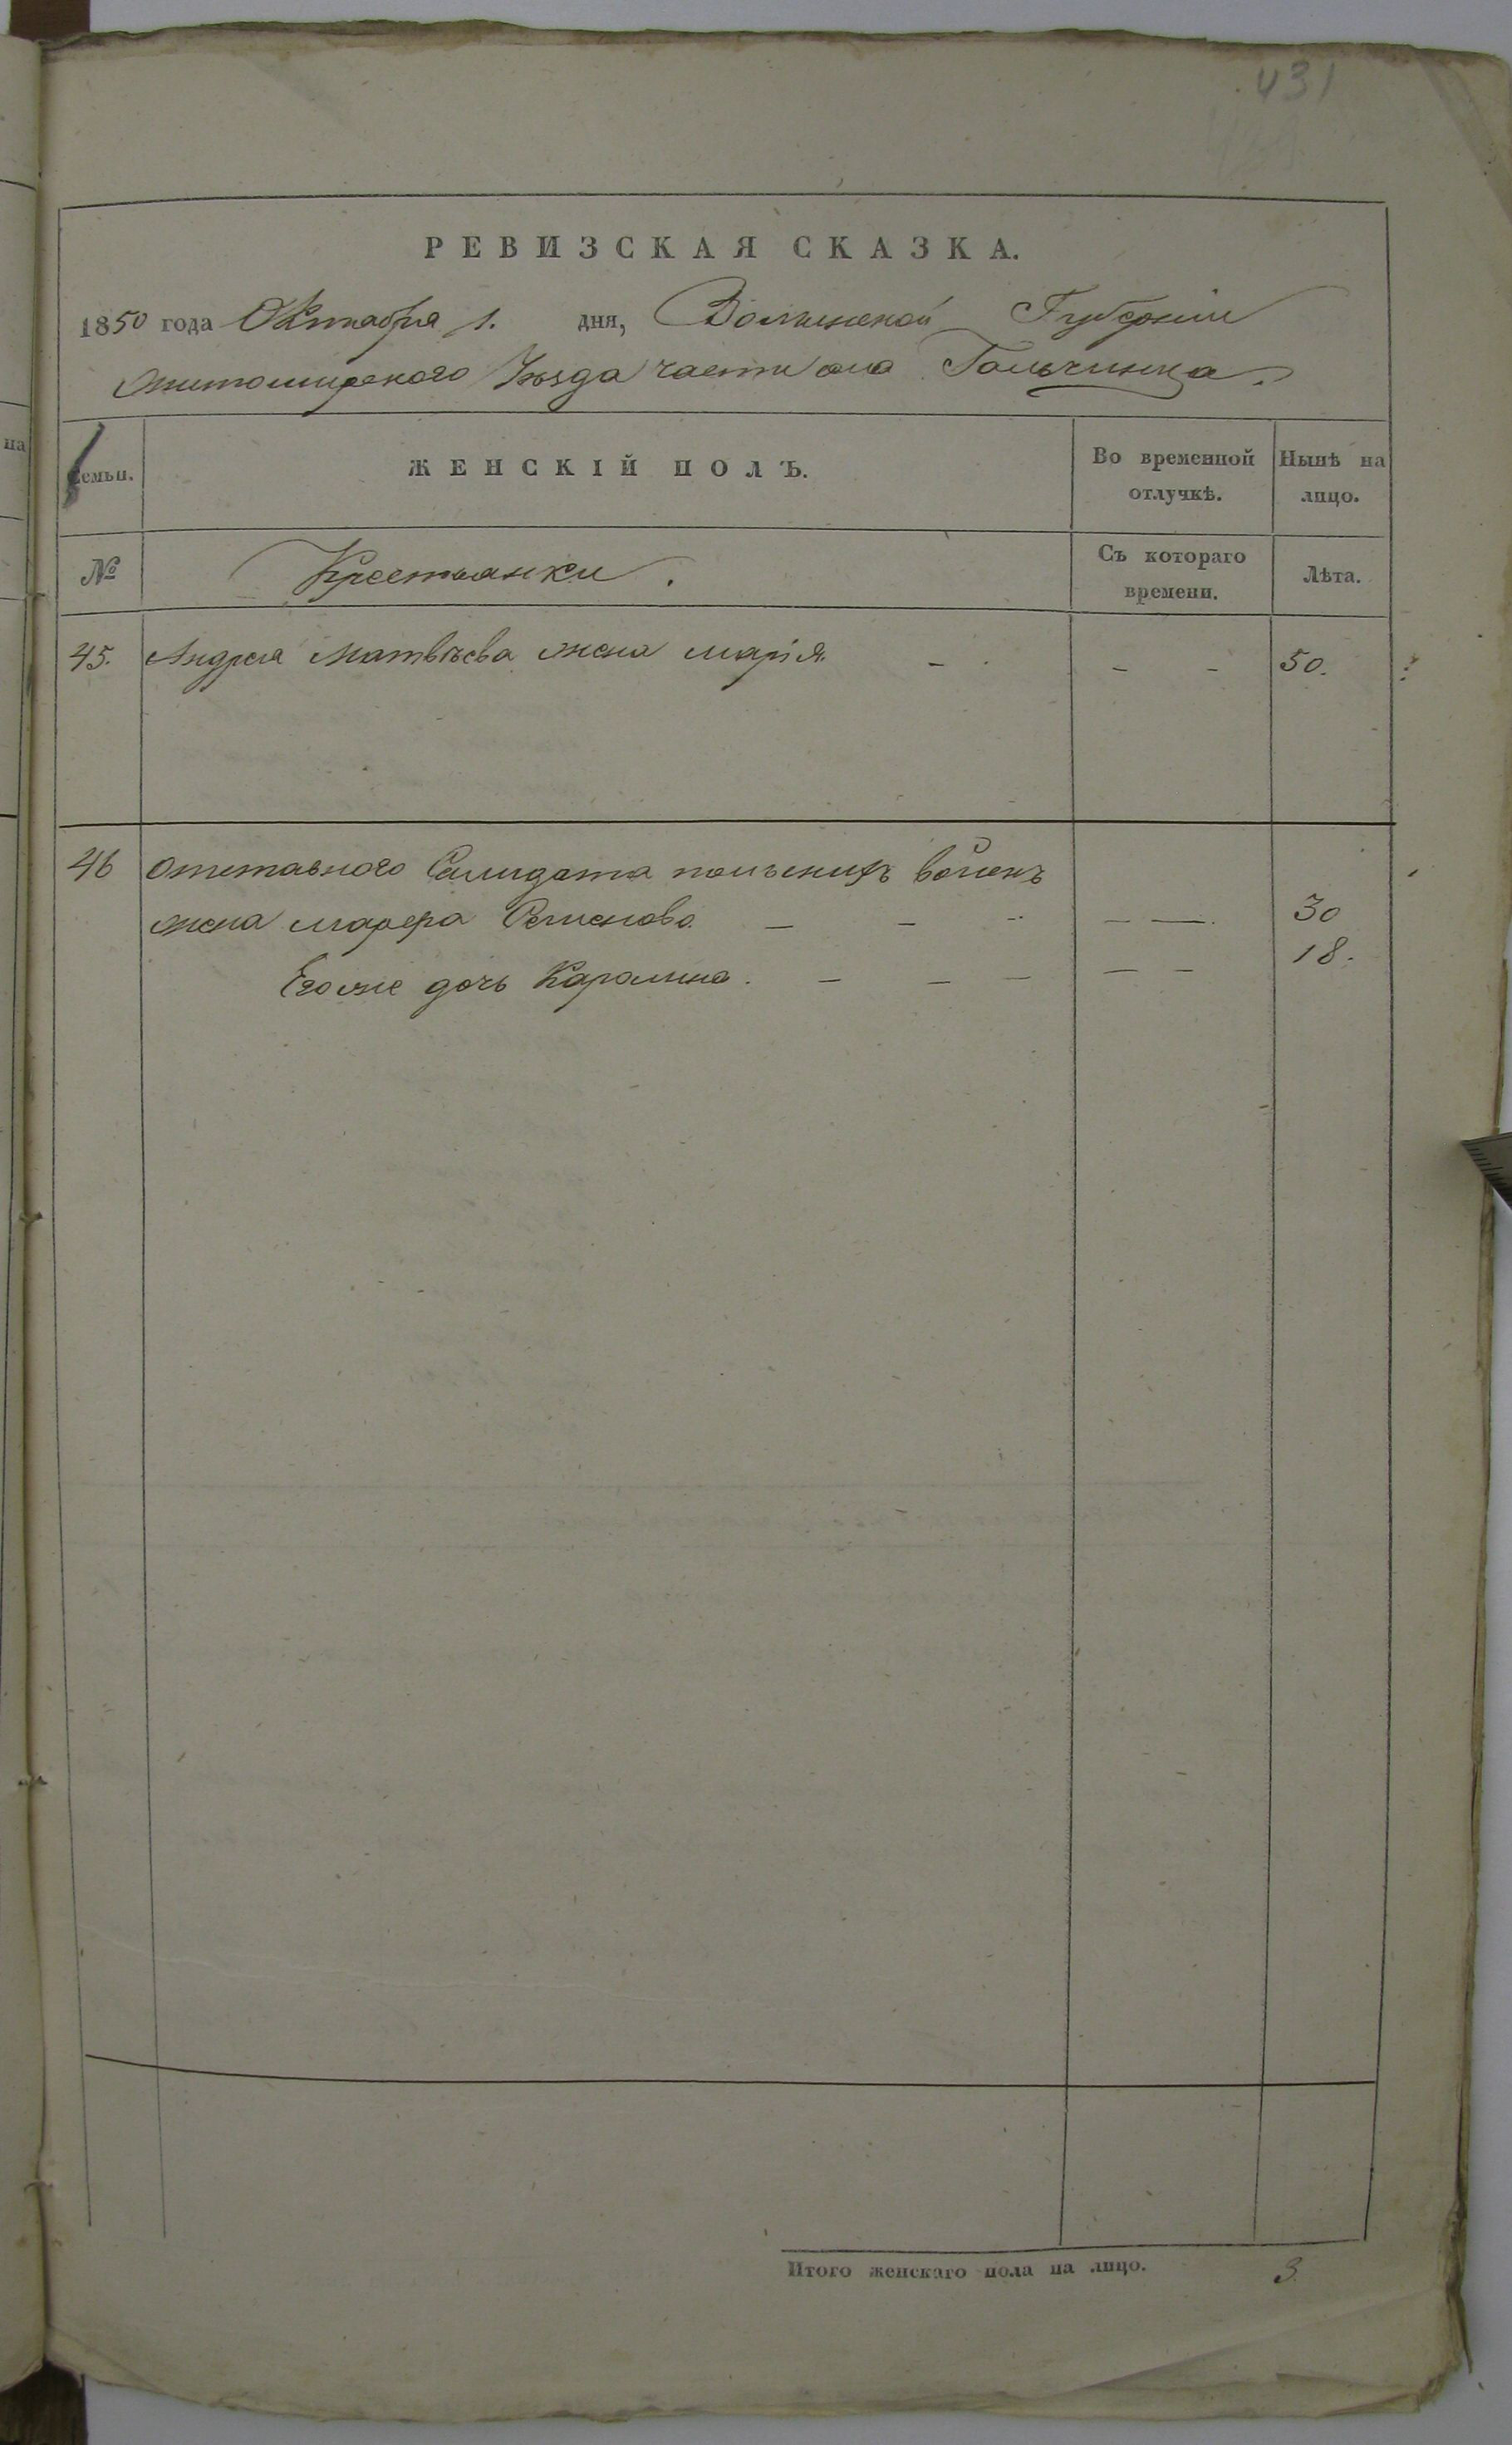 431
РЕВИЗСКАЯ СКАЗКА.
1850 года Октября 1. дня, Волынской Губерніи
Житомирского Уѣзда части села Гальчинца.
на
Семьи.
ЖЕНСКІЙ ПОЛЪ.
Во временной отлучкѣ.
Нынѣ на лицо.
№
Крестьянки.
Съ котораго времени.
Лѣта.
45. Андрея Матвѣева жена Марія. - . - - 50.
46 Отставного Салидата польскихъ войскъ
жена Семенова. — - - — — . 30
Егоже дочь Каралина. — — — — — 18.
Итого женскаго пола на лицо. 3